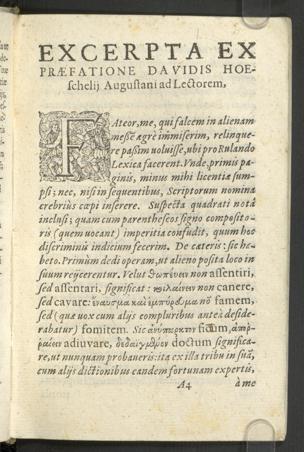 EXCERPTA EX
PRÆFATIONE DAVIDIS HOE-
schelij Augustani ad Lectorem,
FAteor, me, qui falcem in alienam
messē ægrè immiserim, relinque-
re passim voluisse, ubi pro Rulando
Lexica facerent. Vnde primis pa-
ginis, minus mihi licentiæ sum-
psi; nec, nisi in sequentibus, Scriptorum nomina
crebriùs cœpi inserere. Suspecta quadrati nota
inclusi, quam cum parentheseos signo composito-
ris (quem uocant) imperitia confudit, quum hoc
discriminis indicium fecerim. De cæteris: sic ha-
beto. Primùm dedi operam, ut alieno posita loco in
suum reijcerentur. Velut non assentiri,
sed assentari, significat: non canere,
sed cavare: nō famem,
sed (qua uox cum alijs compluribus anteà deside-
rabatur) fomitem. Sic fictum,
adiuvare, doctum significa-
re, ut nunquam probaueris: ita ex illa tribu in suā,
cum alijs dictionibus eandem fortunam expertis,
A4 à me